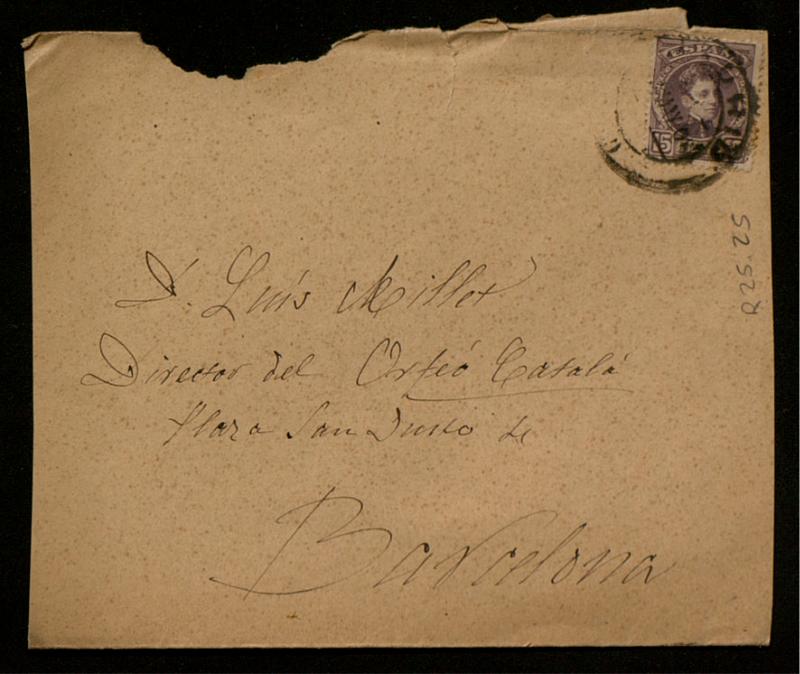 ESPAÑA
15
D. Luís Millet
Director del Orfeó Catalá
Plaza San Justo de
Barcelona